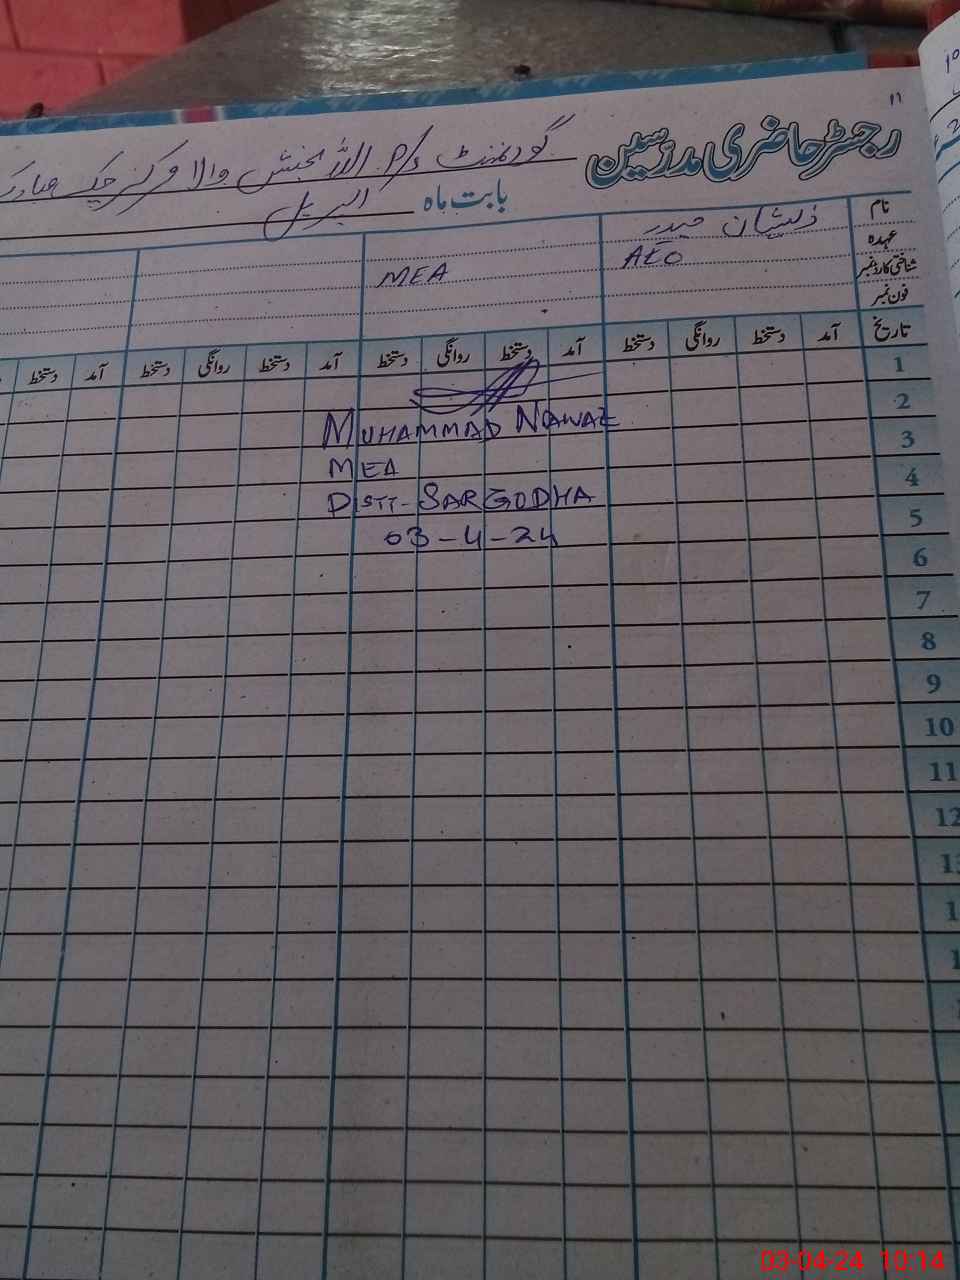 ۱۱
رجسٹر حاضری مدرسین گورنمنٹ P/S اللہ بخش والا مرکز چک
بابت ماہ اپریل
نام ذیشان حیدر
عہدہ AEO MEA
شناختی کارڈ نمبر
فون نمبر
تاریخ آمد دستخط روانگی دستخط آمد دستخط روانگی دستخط آمد دستخط روانگی دستخط آمد دستخط
1
2
MUHAMMAD NAWAZ
3
MEA
4
DISTT-SARGODHA
5
03-4-24
6
7
8
9
10
11
12
03-04-24 10:14